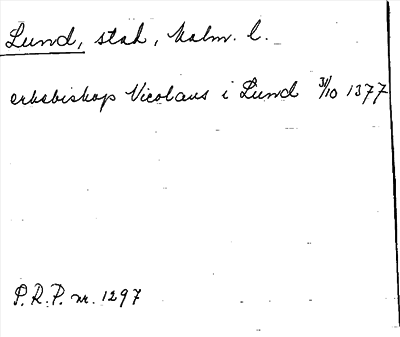 Lund, stad, Malm. l.
erkebiskop Nicolaus i Lund 3/10 1377
P.R.P. nr. 1297